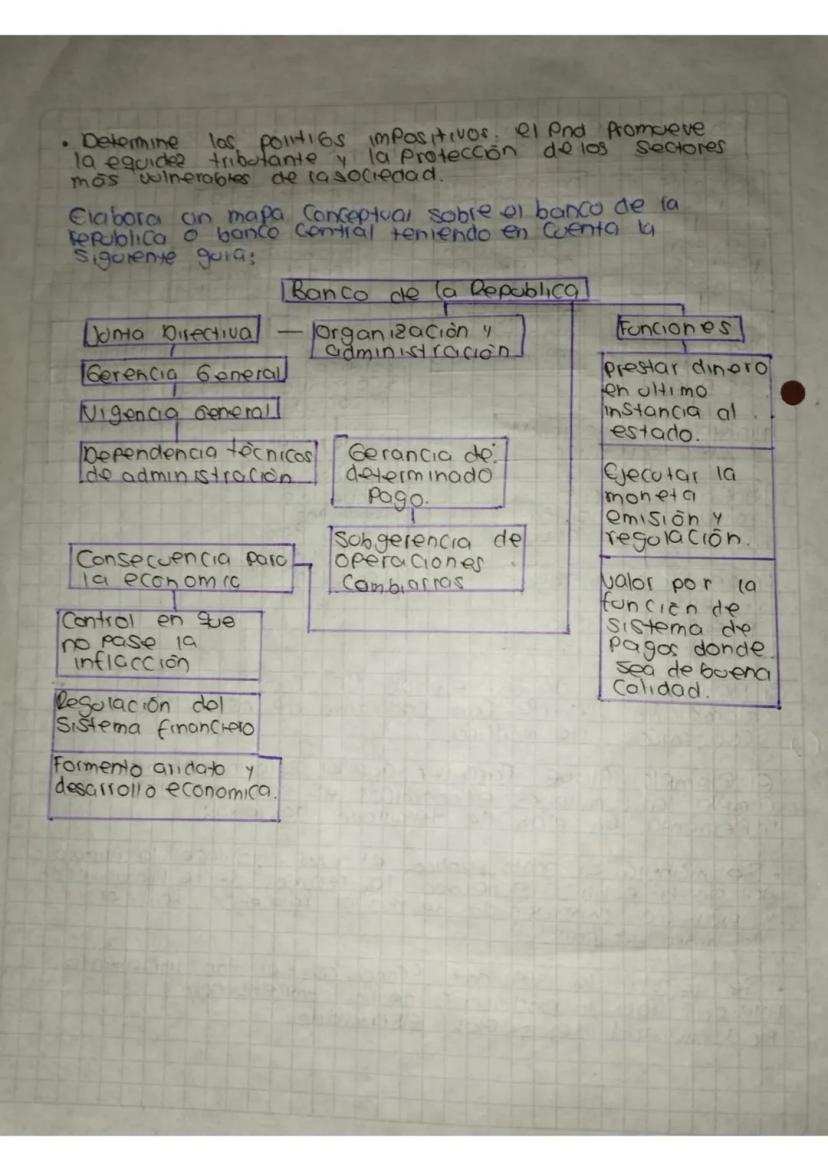 • Determine las politi6s impositivos. el Pnd Promueve
la equidee tributante y la Protección de los Sectores
más vulnerables de la sociedad.
Elabora un mapa Conceptual sobre el banco de la
republica o banco Central teniendo en cuenta la
siguiente guia:
Banco de la Republica
Junta Directiva — Organización y
administración
Funciones
Gerencia General
Vigencia General
Dependencia tècnicos
de administración
Gerancia de
determinado
Pago.
Subgerencia de
operaciones
Cambiarras
prestar dinero
en ultimo
instancia al
estado.
Ejecutar la
moneta
emisión y
regulación.
Valor por la
función de
sistema de
pagos donde
sea de buena
calidad.
Consecuencia para
la economic
Control en que
no pase la
inflacción
Regulación del
Sistema financiero
Formento aridato y
desarrollo economica.